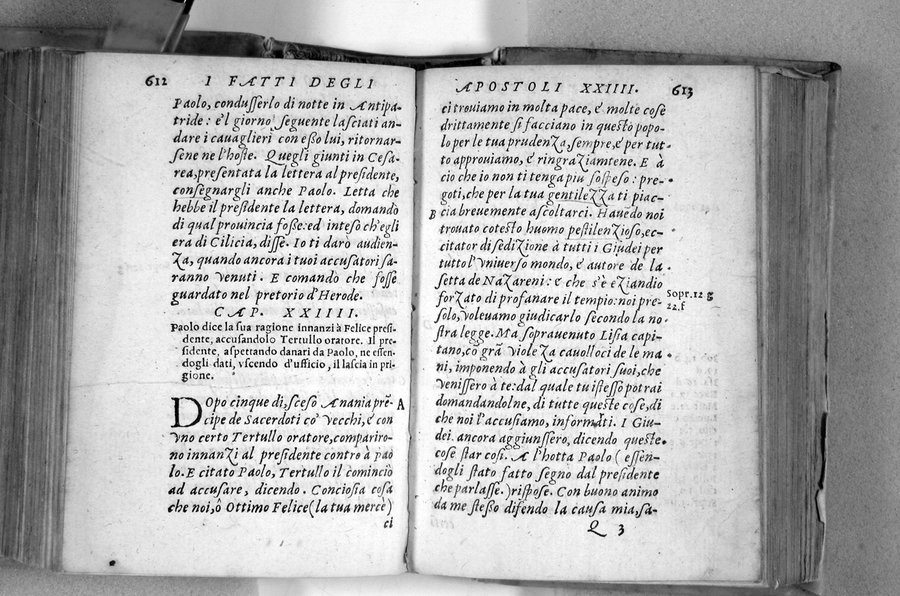 612 I FATTI DEGLI
Paolo, condusserlo di notte in Antipa-
tride: e'l giorno seguente lasciati an-
dare i cavaglieri con esso lui, ritornar-
sene ne l'hoste. Quegli giunti in Cesa-
rea, presentata la lettera al presidente,
consegnargli anche Paolo. Letta che
hebbe il presidente la lettera, domandò
di qual provincia fosse: ed inteso ch'egli
era di Cilicia, disse. Io ti darò audien-
za, quando ancora i tuoi accusatori sa-
ranno venuti. E comandò che fosse
guardato nel pretorio d'Herode.
CAP. XXIIII.
Paolo dice la sua ragione innanzi à Felice presi-
dente, accusandolo Tertullo oratore. Il pre-
sidente, aspettando danari da Paolo, ne essen-
dogli dati, vscendo d'ufficio, il lascia in pri-
gione.
Dopo cinque dì, sceso Anania prē- A
cipe de Sacerdoti co' vecchi, e con
vno certo Tertullo oratore, compariro-
no innanzi al presidente contro à pao
lo. E citato Paolo, Tertullo il cominciò
ad accusare, dicendo. Conciosia cosa
che noi, ô Ottimo Felice (la tua mercè)
ci
APOSTOLI XXIIII. 613
ci trouiamo in molta pace, e molte cose
drittamente si facciano in questo popo-
lo per le tua prudenza, sempre, e per tut-
to approuiamo, e ringraziamtene. E à
cio che io non ti tenga piu sospeso: pre-
goti, che per la tua gentilezza ti piac-
B cia breuemente ascoltarci. Hauēdo noi
trouato cotesto huomo pestilenzioso, ec-
citator di sedizione à tutti i Giudei per
tutto l'vniuerso mondo, e autore de la
setta de Nazareni: e che s'è eziandio
forzato di profanare il tempio: noi pre-
solo, voleuamo giudicarlo secondo la no
stra legge. Ma soprauenuto Lisia capi-
tano, cō grā violeza cauolloci de le ma
ni, imponendo à gli accusatori suoi, che
venissero à te: dal quale tu istesso potrai
domandandolne, di tutte queste cose, di
che noi l'accusiamo, informati. I Giu-
dei ancora aggiunssero, dicendo queste
cose star cosi. A l'hotta Paolo (essēn-
dogli stato fatto segno dal presidente
che parlasse.) rispose. Con buono animo
da me stesso difendo la causa mia, sa-
Q 3
Sopr. 12 g
22.f